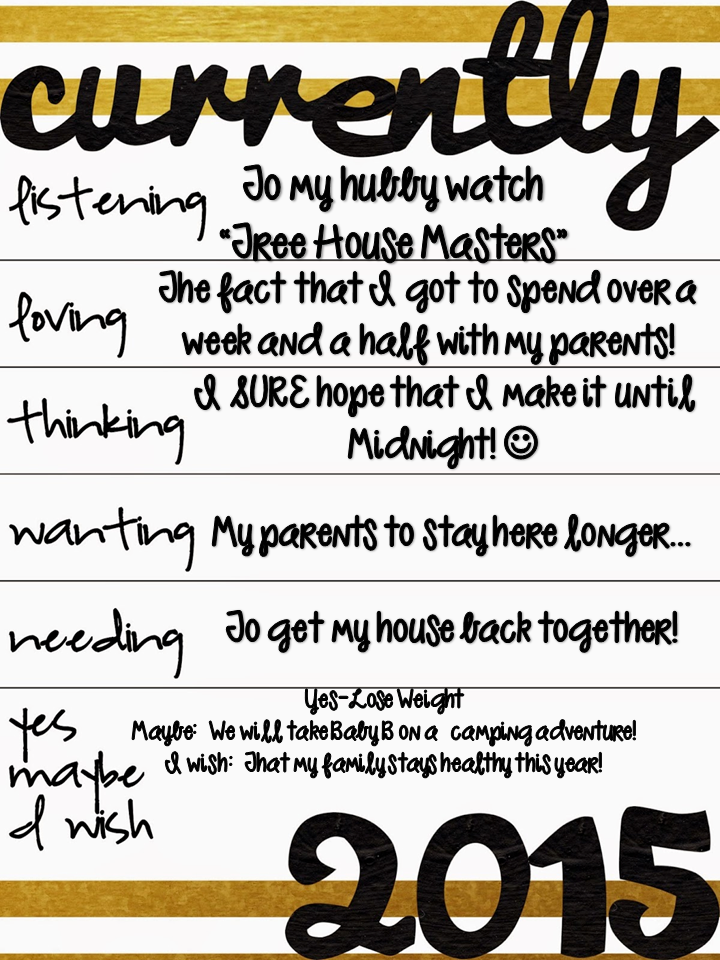 currently
listening
To my hubby watch
“Tree House Masters”
loving
The fact that I got to spend over a
week and a half with my parents!
thinking
I SURE hope that I make it until
Midnight! ☺
wanting
My parents to stay here longer...
needing
To get my house back together!
yes
maybe
I wish
Yes-Lose Weight
Maybe: We will take Baby B on a camping adventure!
I wish: That my family stays healthy this year!
2015